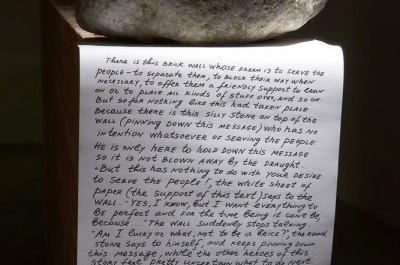 THERE IS THIS BRICK WALL WHOSE DREAM IS TO SERVE THE
PEOPLE – TO SEPARATE THEM, TO BLOCK THEIR WAY WHEN
NECESSARY, TO OFFER THEM A FRIENDLY SUPPORT TO LEAN
ON OR TO PLACE ALL KINDS OF STUFF OVER, AND SO ON.
BUT SO FAR NOTHING LIKE THIS HAD TAKEN PLACE
BECAUSE THERE IS THIS SILLY STONE ON TOP OF THE
WALL (PINNING DOWN THIS MESSAGE) WHO HAS NO
INTENTION WHATSOEVER OF SERVING THE PEOPLE.
HE IS ONLY HERE TO HOLD DOWN THIS MESSAGE
SO IT IS NOT BLOWN AWAY BY THE DRAUGHT.
"BUT THIS HAS NOTHING TO DO WITH YOUR DESIRE
TO SERVE THE PEOPLE!", THE WHITE SHEET OF
PAPER (THE SUPPORT OF THIS TEXT) SAYS TO THE
WALL. "YES, I KNOW, BUT I WANT EVERYTHING TO
BE PERFECT AND FOR THE TIME BEING IT CAN'T BE,
BECAUSE...." THE WALL SUDDENLY STOPS TALKING.
"AM I LUCKY OR WHAT, NOT TO BE A BRICK?", THE ROUND
STONE SAYS TO HIMSELF, AND KEEPS PINNING DOWN
THIS MESSAGE, WHILE THE OTHER HEROES OF THIS
STORY FEEL PRETTY UNCERTAIN WHAT TO DO NEXT